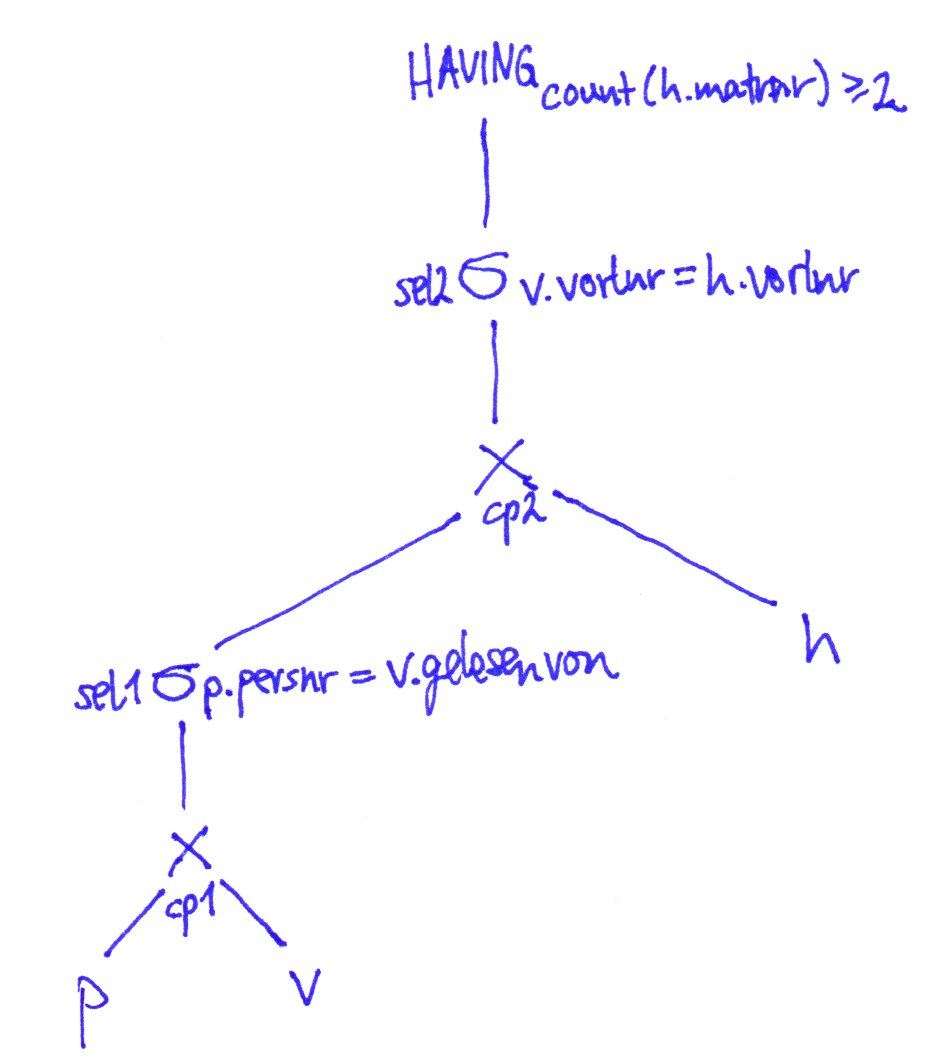 HAVING count(h.matrnr) ≥ 2
sel2 σ v.vorlnr = h.vorlnr
×
cp2
h
sel1 σ p.persnr = v.gelesenvon
×
cp1
p
v